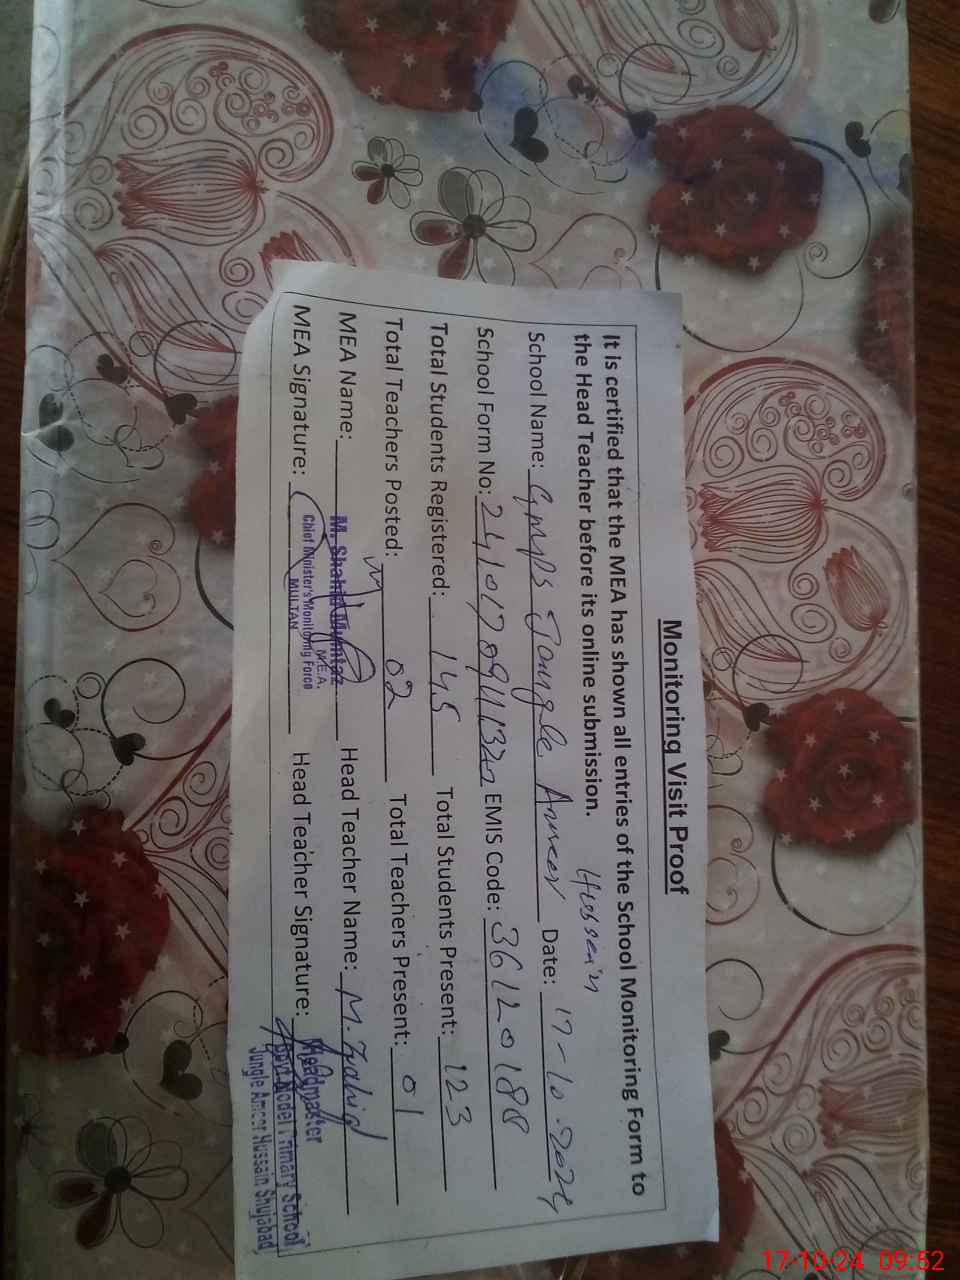 Monitoring Visit Proof
It is certified that the MEA has shown all entries of the School Monitoring Form to
the Head Teacher before its online submission.
Hussain
School Name: GMPS Jungle Ameer Date: 17-10-2024
School Form No: EMIS Code: 36120188
Total Students Registered: 145 Total Students Present: 123
Total Teachers Posted: 02 Total Teachers Present: 01
MEA Name: M. Shahid Mumtaz Head Teacher Name: M. Zahid
M.E.A.
MEA Signature: Chief Minister's Monitoring Force Head Teacher Signature: Headmaster
MULTAN
Govt Model Primary School
Jungle Ameer Hussain Shujabad
17-10-24 09:52